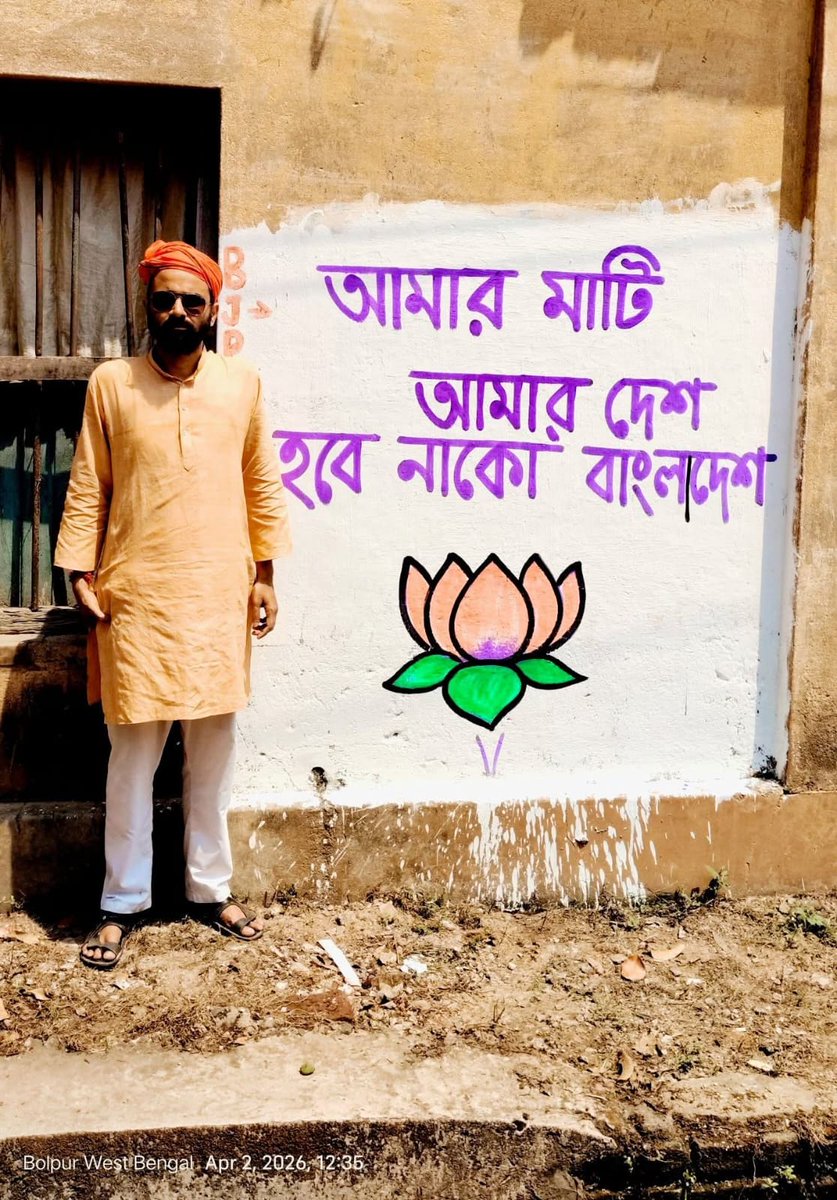 BJP
আমার মাটি
আমার দেশ
হবে নাকো বাংলাদেশ
Bolpur West Bengal Apr 2, 2026, 12:35